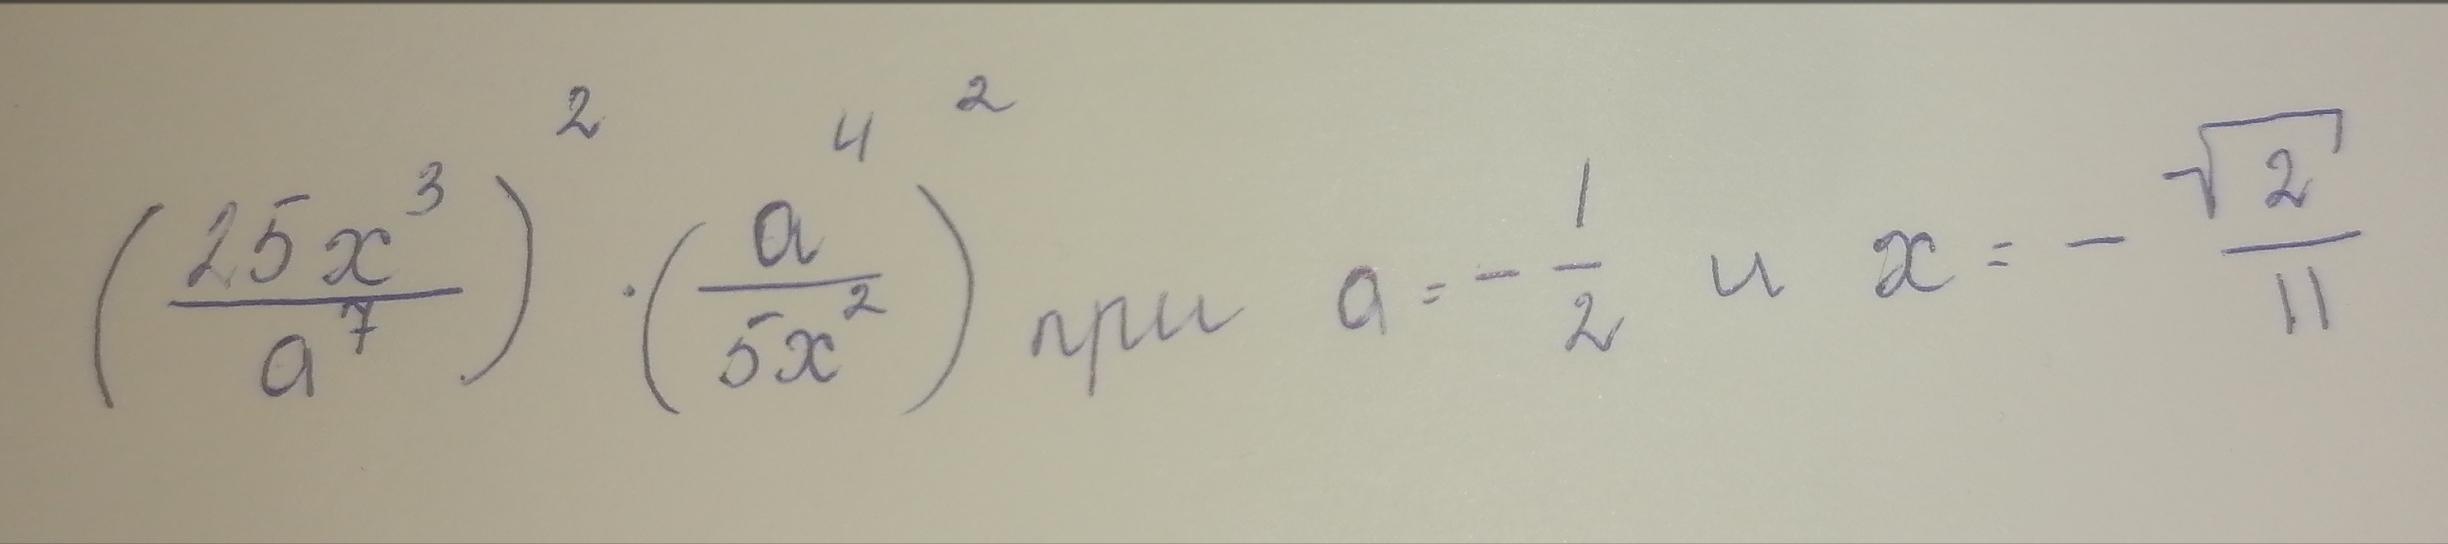 (25x³/a⁷)² · (a⁴/5x²)² при a = -1/2 и x = -√2/11